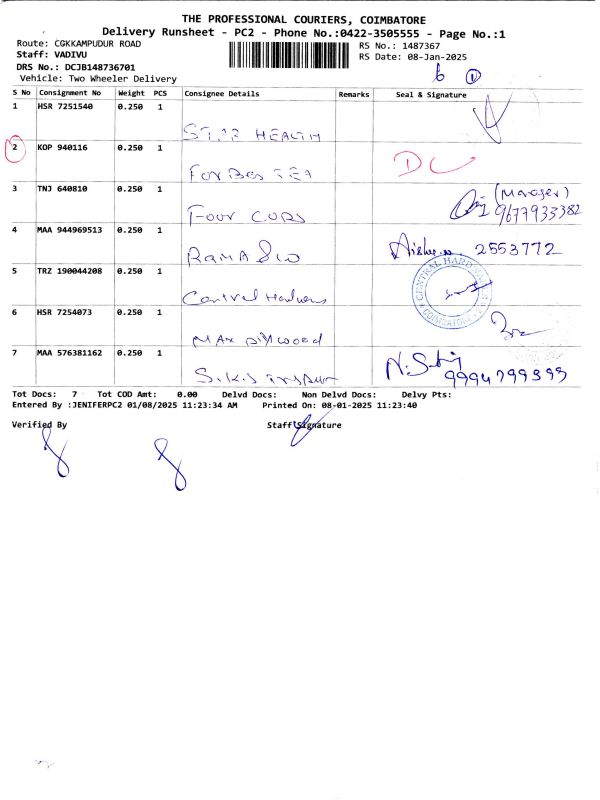 THE PROFESSIONAL COURIERS, COIMBATORE
Delivery Runsheet - PC2 - Phone No.:0422-3505555 - Page No.:1
Route: CGKKAMPUDUR ROAD
RS No.: 1487367
Staff: VADIVU
RS Date: 08-Jan-2025
DRS No.: DCJB148736701
Vehicle: Two Wheeler Delivery
6 1
S No Consignment No Weight PCS Consignee Details Remarks Seal & Signature
1 HSR 7251540 0.250 1
STAR HEALTH
2 KOP 940116 0.250 1
DC
Forbes
3 TNJ 640810 0.250 1
(Manager)
9677933382
Four CUPS
4 MAA 944969513 0.250 1
2553772
5 TRZ 190044208 0.250 1
CENTRAL
COIMBATORE
Central
6 HSR 7254073 0.250 1
Max Plywood
7 MAA 576381162 0.250 1
S.K.S
Tot Docs: 7 Tot COD Amt: 0.00 Delvd Docs: Non Delvd Docs: Delvy Pts:
Entered By :JENIFERPC2 01/08/2025 11:23:34 AM Printed On: 08-01-2025 11:23:40
Verified By Staff Signature